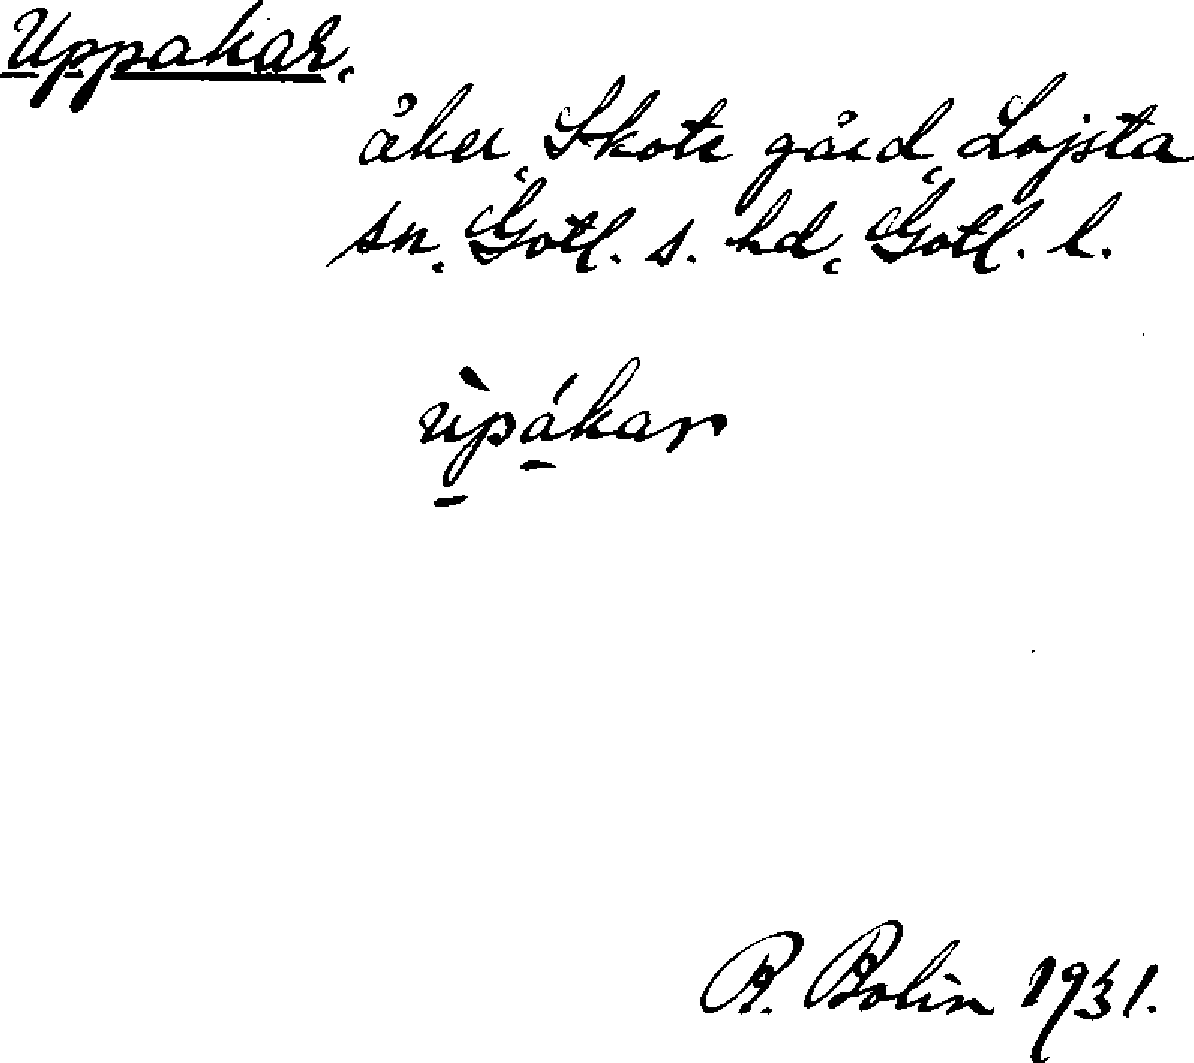 Uppakar,
åker, Skote gård, Lojsta
sn, Gotl. s. hd, Gotl. l.
ùpákar
R. Bolin 1931.